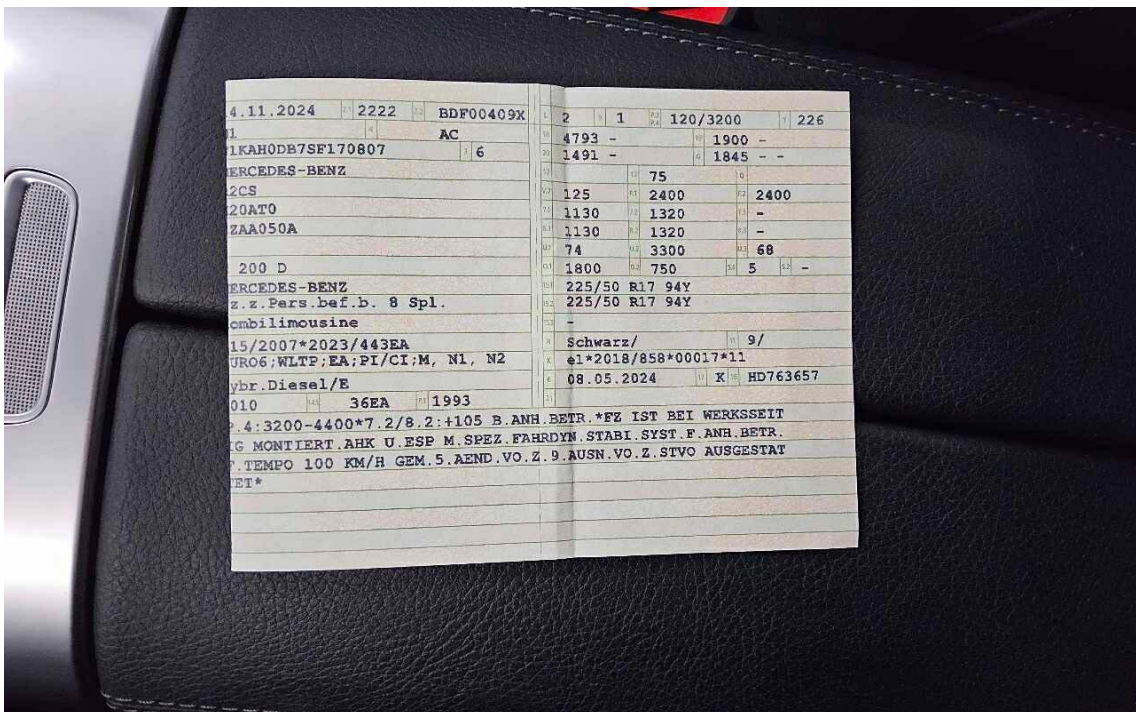 4.11.2024 2222 BDF00409X
1 AC
1KAH0DB7SF170807 6
ERCEDES-BENZ
2CS
20AT0
ZAA050A
200 D
ERCEDES-BENZ
z.z.Pers.bef.b. 8 Spl.
ombilimousine
15/2007*2023/443EA
URO6;WLTP;EA;PI/CI;M, N1, N2
ybr.Diesel/E
010 36EA 1993
L 2 9 1 P.2 P.4 120/3200 T 226
18 4793 - 19 1900 -
20 1491 - G 1845 - -
12 13 75 Q
V.7 125 F.1 2400 F.2 2400
7.1 1130 7.2 1320 7.3 -
8.1 1130 8.2 1320 8.3 -
U.1 74 U.2 3300 U.3 68
O.1 1800 O.2 750 S.1 5 S.2 -
15.1 225/50 R17 94Y
15.2 225/50 R17 94Y
15.3 -
R Schwarz/ 11 9/
K e1*2018/858*00017*11
6 08.05.2024 17 K 16 HD763657
21
.4:3200-4400*7.2/8.2:+105 B.ANH.BETR.*FZ IST BEI WERKSSEIT
IG MONTIERT.AHK U.ESP M.SPEZ.FAHRDYN.STABI.SYST.F.ANH.BETR.
.TEMPO 100 KM/H GEM.5.AEND.VO.Z.9.AUSN.VO.Z.STVO AUSGESTAT
TET*